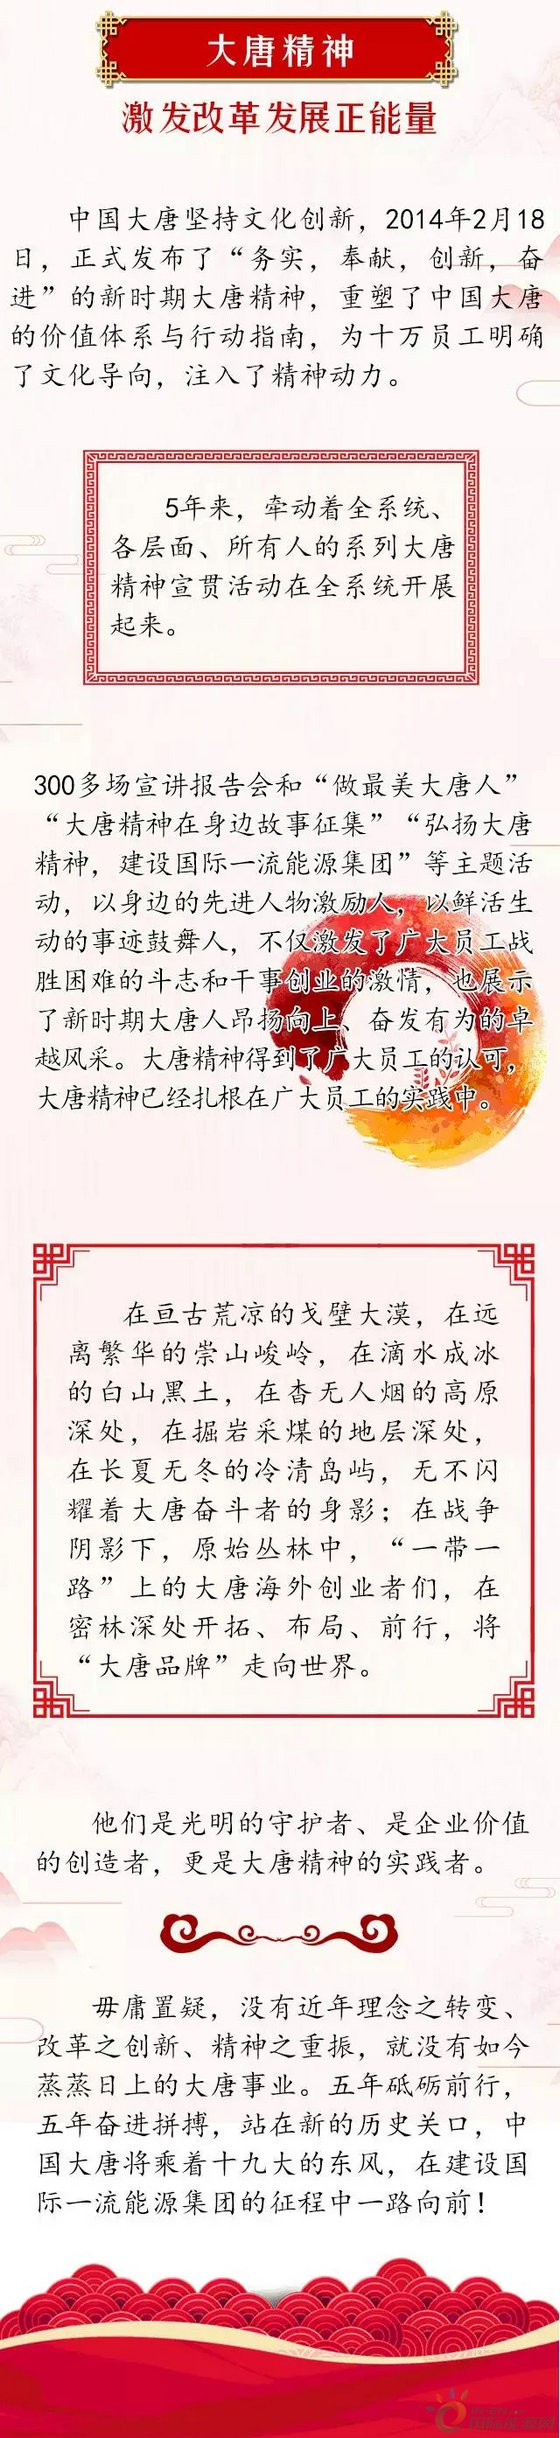 大唐精神
激发改革发展正能量
中国大唐坚持文化创新，2014年2月18
日，正式发布了“务实，奉献，创新，奋
进”的新时期大唐精神，重塑了中国大唐
的价值体系与行动指南，为十万员工明确
了文化导向，注入了精神动力。
5年来，牵动着全系统、
各层面、所有人的系列大唐
精神宣贯活动在全系统开展
起来。
300多场宣讲报告会和“做最美大唐人”
“大唐精神在身边故事征集”“弘扬大唐
精神，建设国际一流能源集团”等主题活
动，以身边的先进人物激励人，以鲜活生
动的事迹鼓舞人，不仅激发了广大员工战
胜困难的斗志和干事创业的激情，也展示
了新时期大唐人昂扬向上、奋发有为的卓
越风采。大唐精神得到了广大员工的认可，
大唐精神已经扎根在广大员工的实践中。
在亘古荒凉的戈壁大漠，在远
离繁华的崇山峻岭，在滴水成冰
的白山黑土，在杳无人烟的高原
深处，在掘岩采煤的地层深处，
在长夏无冬的冷清岛屿，无不闪
耀着大唐奋斗者的身影；在战争
阴影下，原始丛林中，“一带一
路”上的大唐海外创业者们，在
密林深处开拓、布局、前行，将
“大唐品牌”走向世界。
他们是光明的守护者、是企业价值
的创造者，更是大唐精神的实践者。
毋庸置疑，没有近年理念之转变、
改革之创新、精神之重振，就没有如今
蒸蒸日上的大唐事业。五年砥砺前行，
五年奋进拼搏，站在新的历史关口，中
国大唐将乘着十九大的东风，在建设国
际一流能源集团的征程中一路向前！